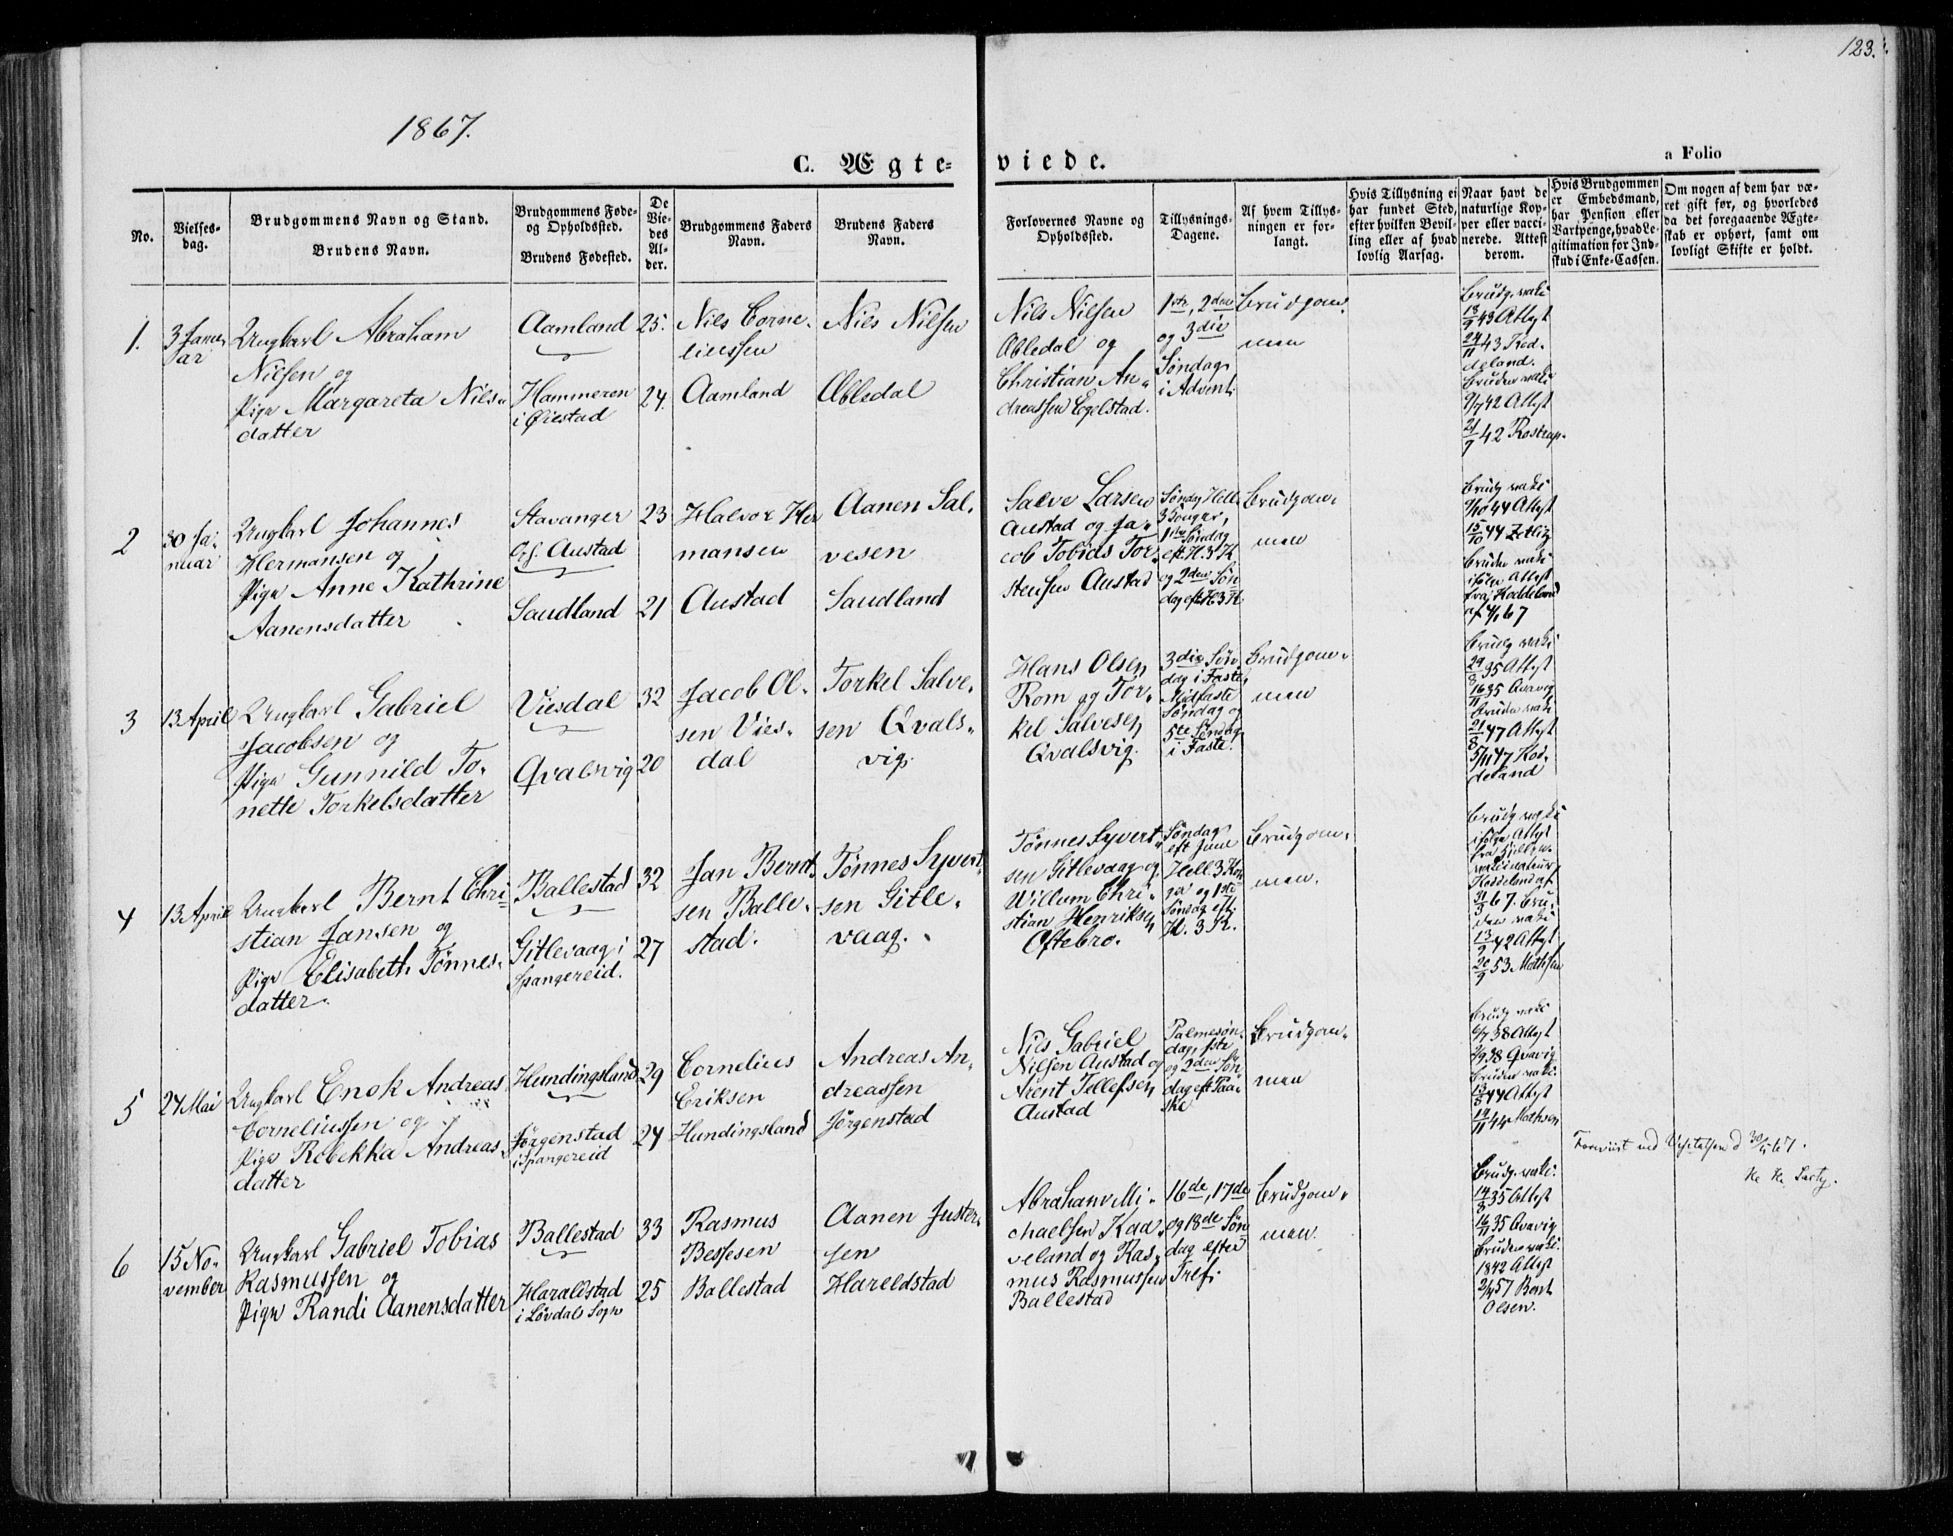 123.
1867.
C. Ægte-
viede.
a Folio
No.
Vielses-
dag.
Brudgommens Navn og Stand.
Brudens Navn.
Brudgommens Føde-
og Opholdssted.
Brudens Fødested.
De
Vie-
des
Al-
der.
Brudgommens Faders
Navn.
Brudens Faders
Navn.
Forlovernes Navne og
Opholdssted.
Tillysnings-
Dagene.
Af hvem Tillys-
ningen er for-
langt.
Hvis Tillysning ei
har fundet Sted,
efter hvilken Bevil-
ling eller af hvad
lovlig Aarsag.
Naar havt de
naturlige Kop-
per eller vacci-
nerede. Attest
derom.
Hvis Brudgommen
er Embedsmand,
har Pension eller
Vartpenge, hvad Le-
gitimation for Ind-
skud i Enke-Cassen.
Om nogen af dem har væ-
ret gift før, og hvorledes
da det foregaaende Ægte-
skab er ophørt, samt om
lovligt Skifte er holdt.
1.
3 Janu-
ar
Ungkarl Abraham
Nilsen og
Pige Margareta Nils-
datter
Aamland
Hammeren
i Øiestad
25.
24.
Nils Corne-
liussen
Aamland
Niels Nilsen
Abledal
Nils Nilsen
Abledal og
Christian An-
dreassen Egelstad.
1ste, 2den
og 3die
Søndag
i Advent
Brudgom-
men
Brudg. vaki
13/9 43 Attest
24/11 43 Hod-
deland.
Bruden vaki
9/7 42 Attest
21/9 42 Rostrup.
2
30 Ja-
nuar
Ungkarl Johannes
Hermansen og
Pige Anne Kathrine
Aanensdatter
Stavanger
Austad
Saudland
23
21
Halvor Her
mansen
Austad
Aanen Sal-
vesen
Saudland
Salve Larsen
Austad og Ja-
cob Tobias Tor-
stensen Austad
Søndag Hell.
3 Konger,
1ste Søndag
eft. H. 3 K.
og 2den Søn
dag eft H 3 K.
Brudgom-
men
Brudg vaki
9/10 44 Attest
15/10 44 Zetlitz
Bruden vaki
ifølge Attest
fra Hoddeland
67
3
13 April
Ungkarl Gabriel
Jacobsen og
Pige Gunnild To-
nette Torkelsdatter
Viesdal
Qvalsvig
32
20
Jacob Ol-
sen Vies-
dal
Torkel Salve-
sen Qvals-
vig.
Hans Olsen
Rom og Tor-
kel Salvesen
Qvalsvig.
3die Søn
dag i Faste,
Midfaste
Søndag og
5te Søndag
i Faste.
Brudgom-
men
Brudg vaki
29/8 35 Attest
16/11 35 Qvavig
Bruden vaki
21/8 47 Attest
5/11 47 Hod-
deland
4
13 April
Ungkarl Bernt Chri-
stian Jansen og
Pige Elisabeth Tønnes-
datter.
Ballestad
Gitlevaag i
Spangereid.
32
27
Jan Bernt
sen Balle-
stad.
Tønnes Syvert
sen Gitle-
vaag.
Tønnes Syvert
sen Gitlevaag og
Willum Chri-
stian Henriksen
Oftebro.
Søndag
eft
Hell. 3 Kon
ger og 1ste
Søndag eft.
H. 3 K.
Brudgom-
men.
Brudg vaki
ifølge Attest
fra Hjelpe-
vaccinateur
Hoddeland af
67. Bru-
den vaki
13/9 42 Attest
20/9 53 Mathsen
5
24 Mai
Ungkarl Enok Andreas
Corneliussen og
Pige Rebekka Andreas-
datter
Hundingsland
Jørgenstad
i Spangereid
29
24
Cornelius
Eriksen
Hundingsland
Andreas An-
dreassen
Jørgenstad
Nils Gabriel
Nilsen Austad og
Arent Tellefsen
Austad
Palmesøn-
dag, 1ste
og 2den Søn
dag eft Paa-
ske
Brudgom-
men
Brudg vaki
6/7 38 Attest
2/9 38 Qvavig
Bruden vaki
13/8 44 Attest
19/11 44 Mathsen
30/5 67.
6
15 No-
vember
Ungkarl Gabriel Tobias
Rasmussen og
Pige Randi Aanensdatter
Ballestad
Haraldstad
i Løvdals Sogn
33
25
Rasmus
Bessesen
Ballestad
Aanen Juster-
sen
Hareldstad
Abraham Mi-
chaelsen Kaa-
veland og Ras-
mus Rasmussen
Ballestad
16de, 17de
og 18de Søn
dag efter
Tref:
Brudgom-
men.
Brudg. vaki.
14/8 35 Attest
16/11 35 Qvavig
Bruden vaki.
1842 Attest
57 Bent
Olsen.